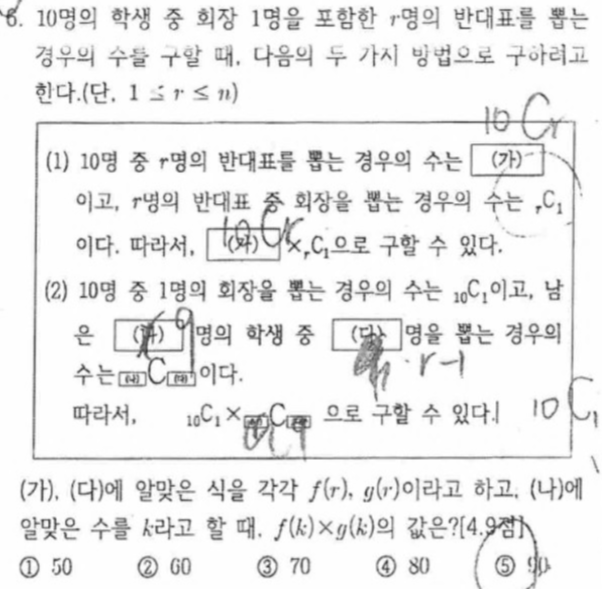 6. 10명의 학생 중 회장 1명을 포함한 r명의 반대표를 뽑는
경우의 수를 구할 때, 다음의 두 가지 방법으로 구하려고
한다.(단, 1 ≤ r ≤ n)
10Cr
(1) 10명 중 r명의 반대표를 뽑는 경우의 수는 (가)
이고, r명의 반대표 중 회장을 뽑는 경우의 수는 rC1
10Cr
이다. 따라서, (가) ×rC1으로 구할 수 있다.
(2) 10명 중 1명의 회장을 뽑는 경우의 수는 10C1이고, 남
은 (나) 명의 학생 중 (다) 명을 뽑는 경우의
9
r-1
수는 (나)C(다)이다.
따라서, 10C1×(나)C(다) 으로 구할 수 있다.
10C1
(가), (다)에 알맞은 식을 각각 f(r), g(r)이라고 하고, (나)에
알맞은 수를 k라고 할 때, f(k)×g(k)의 값은?[4.9점]
① 50 ② 60 ③ 70 ④ 80 ⑤ 90